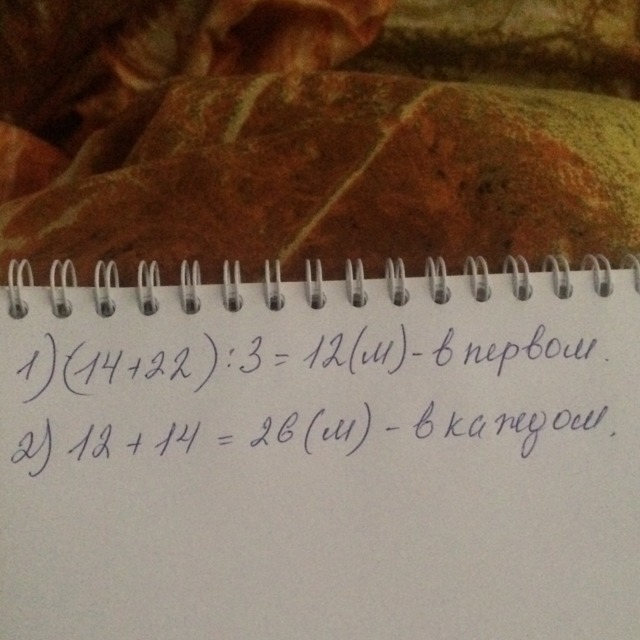 1) (14+22):3=12(м)-в первом.
2) 12+14=26(м)-в каждом.